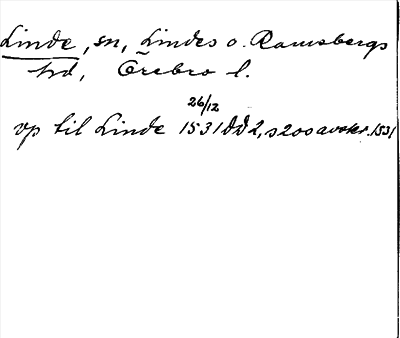 Linde, sn, Lindes o. Ramsbergs
hd, Örebro l.
26/12
vp til Linde 1531 DD2, s200 avskr. 1531